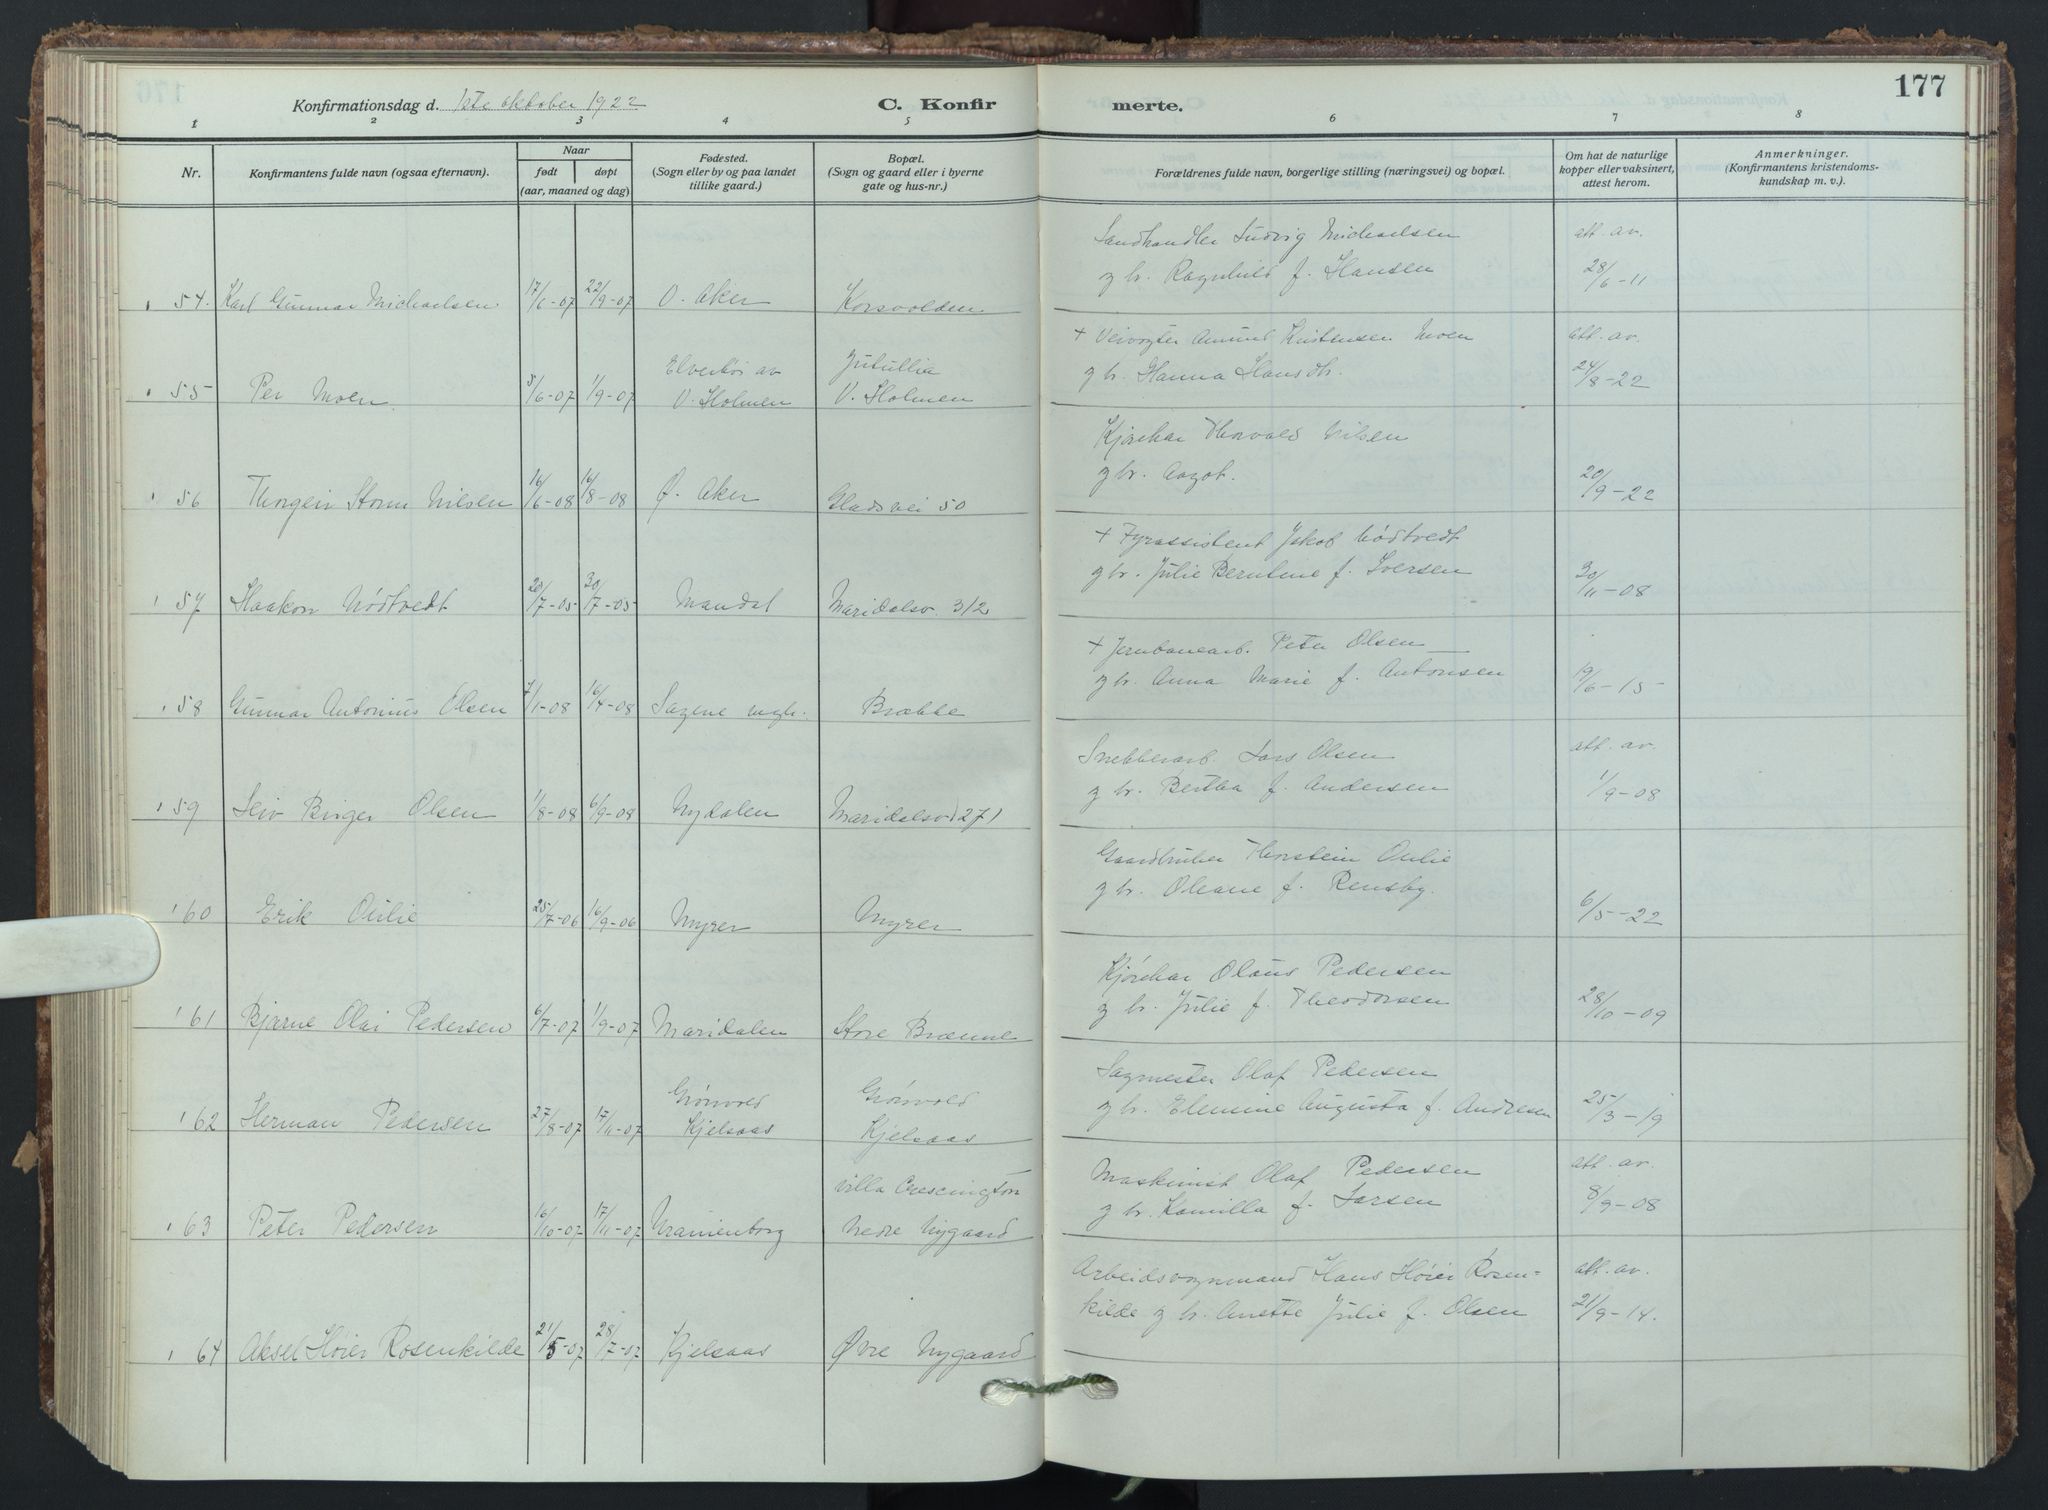 177
Konfirmationsdag d. 1ste oktober 1922 C. Konfir merte.
1 2 3 4 5 6 7 8
Nr. Konfirmantens fulde navn (ogsaa efternavn). Naar født døpt (aar, maaned og dag)
Fødested. (Sogn eller by og paa landet tillike gaard.)
Bopæl. (Sogn og gaard eller i byerne gate og hus-nr.)
Forældrenes fulde navn, borgerlige stilling (næringsvei) og bopæl.
Om hat de naturlige kopper eller vaksinert, attest herom.
Anmerkninger. (Konfirmantens kristendoms- kundskap m. v.).
Sandhandler Ludvig Michaelsen att. av.
54. Karl Gunnar Michaelsen 17/6-07 22/9-07 V. Aker Korsvolden g hr. Ragnhild f. Hansen 28/6-11
Elverhøi av Jutullia + Veivogter Amund Kristensen Moen att. av.
55 Per Moen 5/6-07 1/9-07 V. Holmen V. Holmen g hr. Hanna Hansdtr. 24/8-22
Kjørekar Thorvald Nilsen
56 Thorgeir Storm Nilsen 16/6-08 16/8-08 Ø. Aker Gladsvei 50 g hr. Aagot. 20/9-22
+ Fyrassistent Jakob Nødtvedt
57 Haakon Nødtvedt 20/7-05 30/7-05 Mandal Maridalsv. 312 g hr. Julie Berntine f. Iversen 30/11-08
+ Jernbanearb. Peter Olsen
58 Gunnar Antonius Olsen 7/1-08 16/4-08 Sagene mgh. Brække g hr. Anna Marie f. Antonsen 19/6-15
Snekkerarb. Lars Olsen att. av.
59 Leiv Birger Olsen 1/8-08 6/9-08 Nydalen Maridalsv 271 g hr. Bertha f. Andersen 1/9-08
Gaardbruker Thorstein Oulie
60 Erik Oulie 25/7-06 16/9-06 Myrer Myrer g hr. Oleane f. Rensby. 6/5-22
Kjørekar Olaus Pedersen
61 Bjarne Olai Pedersen 6/7-07 1/9-07 Maridalen Store Brænne g hr. Julie f. Theodorsen 28/10-09
Grönvold Grönvold Sagmester Olaf Pedersen
62 Herman Pedersen 27/8-07 17/11-07 Kjelsaas Kjelsaas g hr. Elensine Augusta f. Andresen 25/3-19
villa Crescington Maskinist Olaf Pedersen att. av.
63 Peter Pedersen 16/10-07 17/11-07 Uranienborg Nedre Nygaard g hr. Kamilla f. Larsen 8/9-08
Arbeidsvognmand Hans Høier Rosen= att. av.
64 Aksel Høier Rosenkilde 21/5-07 28/7-07 Kjelsaas Øvre Nygaard kilde g hr. Anette Julie f. Olsen 21/9-14.